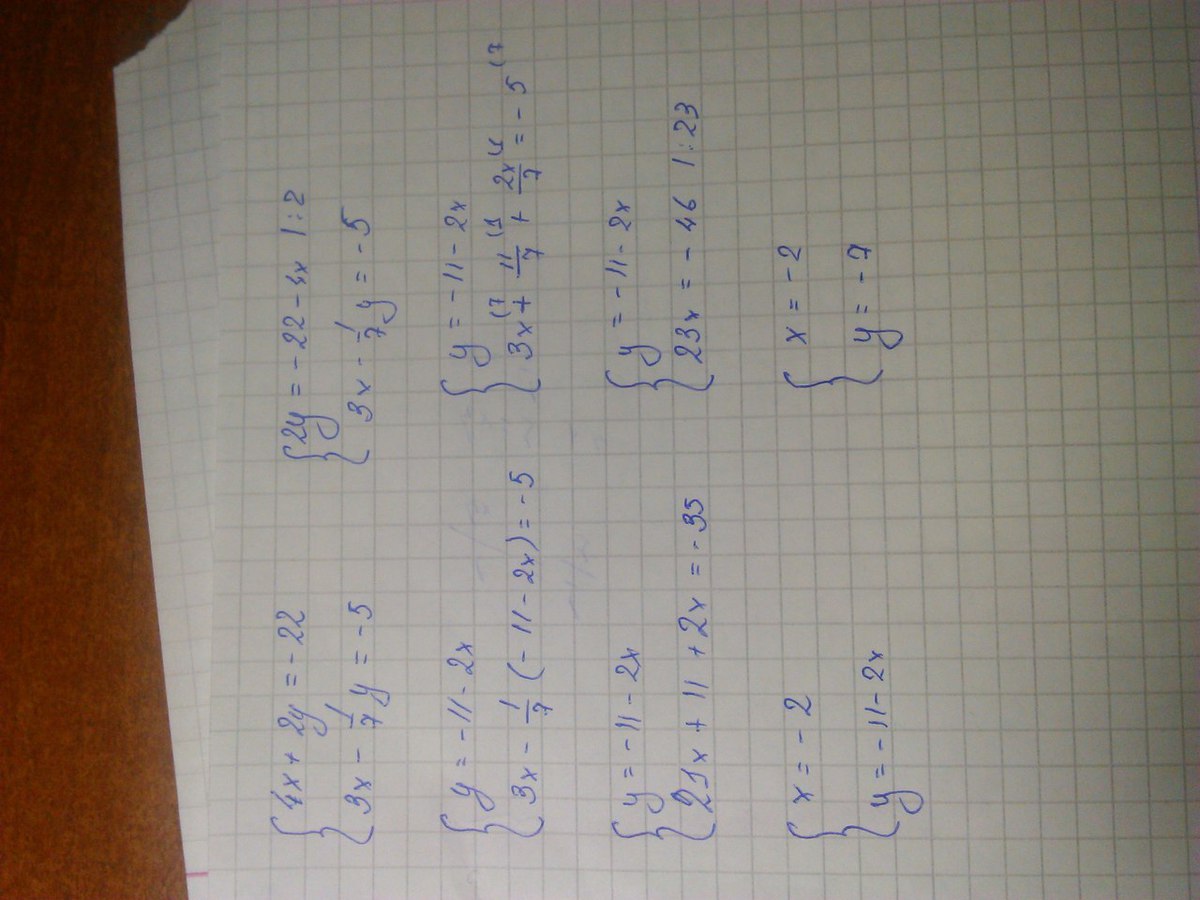 {4x + 2y = -22
{3x - 1/7 y = -5
{2y = -22 - 4x |:2
{3x - 1/7 y = -5
{y = -11 - 2x
{3x - 1/7 (-11 - 2x) = -5
{y = -11 - 2x
{3x (7 + 11/7 (1 + 2x/7 (1 = -5 (7
{y = -11 - 2x
{21x + 11 + 2x = -35
{y = -11 - 2x
{23x = -46 |:23
{x = -2
{y = -11 - 2x
{x = -2
{y = -7